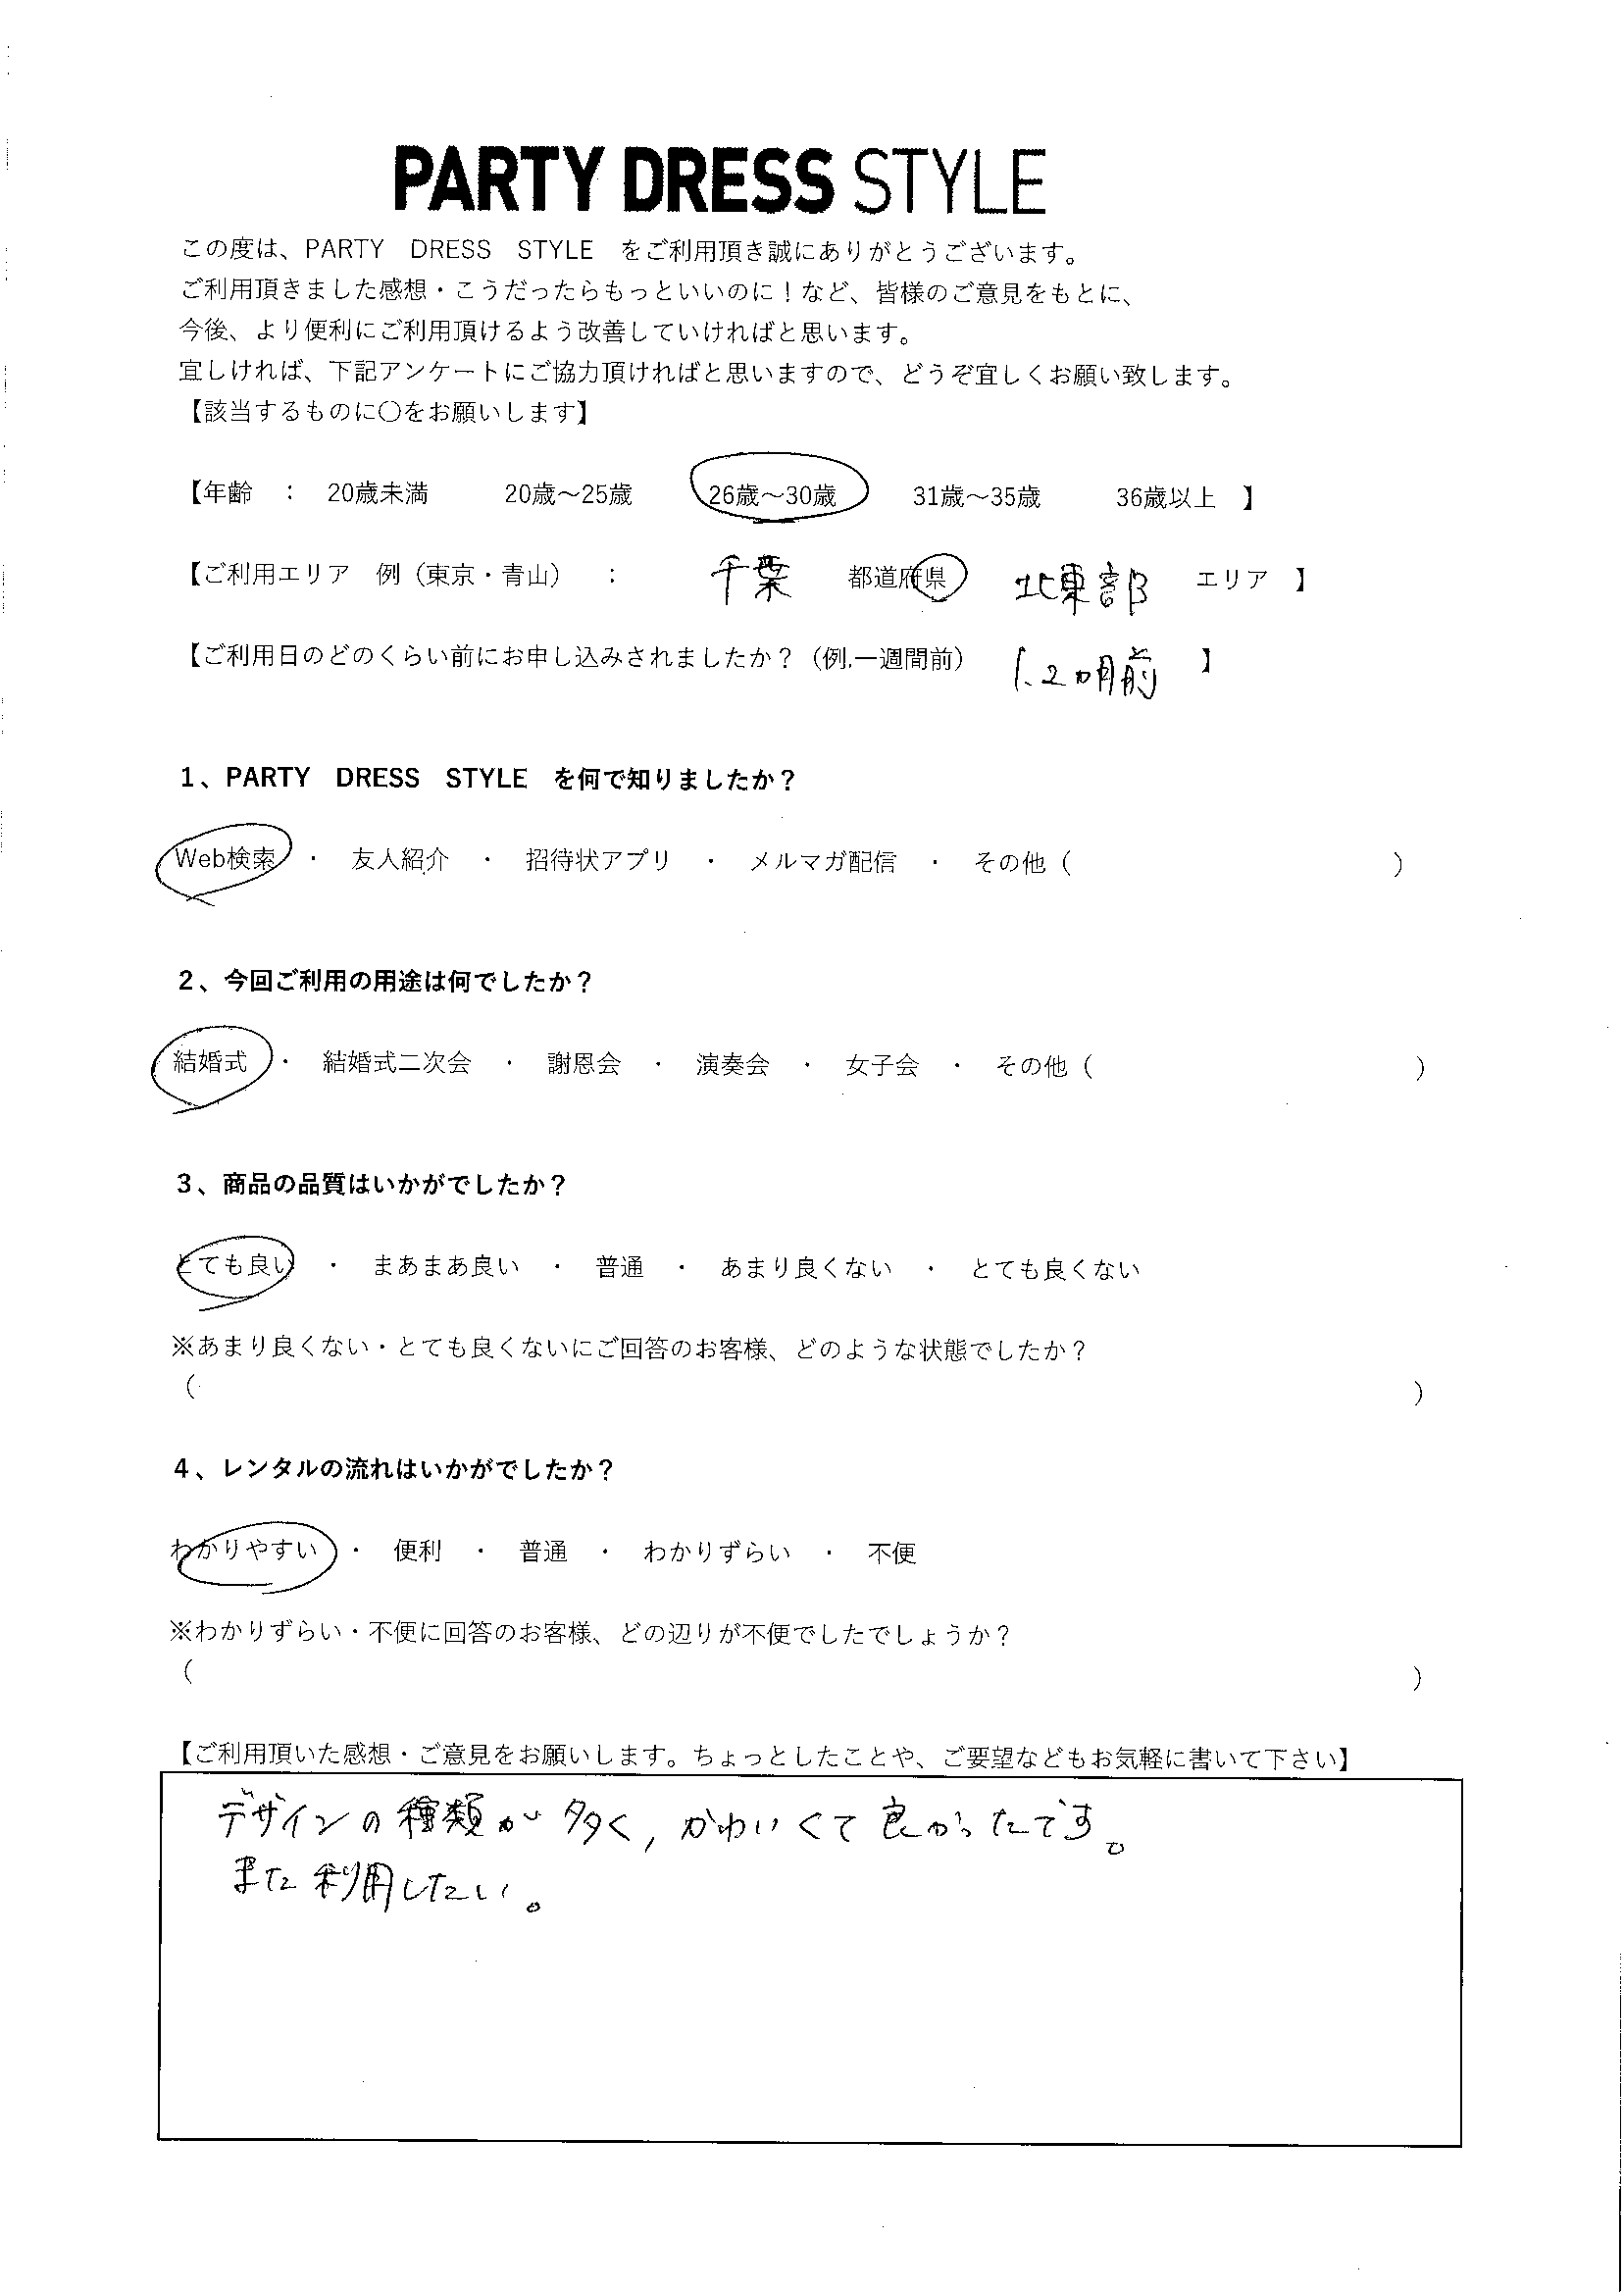 PARTY DRESS STYLE
この度は、PARTY　DRESS　STYLE　をご利用頂き誠にありがとうございます。
ご利用頂きました感想・こうだったらもっといいのに！など、皆様のご意見をもとに、
今後、より便利にご利用頂けるよう改善していければと思います。
宜しければ、下記アンケートにご協力頂ければと思いますので、どうぞ宜しくお願い致します。
【該当するものに〇をお願いします】
【年齢　：　20歳未満　　　20歳～25歳　　　26歳～30歳　　　31歳～35歳　　　36歳以上　】
【ご利用エリア　例（東京・青山）　：　　　千葉　　都道府県　　北東部　　エリア　】
【ご利用日のどのくらい前にお申し込みされましたか？（例.一週間前）　1、2ヵ月前　】
1、PARTY　DRESS　STYLE　を何で知りましたか？
Web検索　・　友人紹介　・　招待状アプリ　・　メルマガ配信　・　その他（　　　　　　　　　　　　　）
2、今回ご利用の用途は何でしたか？
結婚式　・　結婚式二次会　・　謝恩会　・　演奏会　・　女子会　・　その他（　　　　　　　　　　　　　）
3、商品の品質はいかがでしたか？
とても良い　・　まあまあ良い　・　普通　・　あまり良くない　・　とても良くない
※あまり良くない・とても良くないにご回答のお客様、どのような状態でしたか？
（　　　　　　　　　　　　　　　　　　　　　　　　　　　　　　　　　　　　　　　　）
4、レンタルの流れはいかがでしたか？
わかりやすい　・　便利　・　普通　・　わかりずらい　・　不便
※わかりずらい・不便に回答のお客様、どの辺りが不便でしたでしょうか？
（　　　　　　　　　　　　　　　　　　　　　　　　　　　　　　　　　　　　　　　　）
【ご利用頂いた感想・ご意見をお願いします。ちょっとしたことや、ご要望などもお気軽に書いて下さい】
デザインの種類が多く，かわいくて良かったです。
また利用したい。